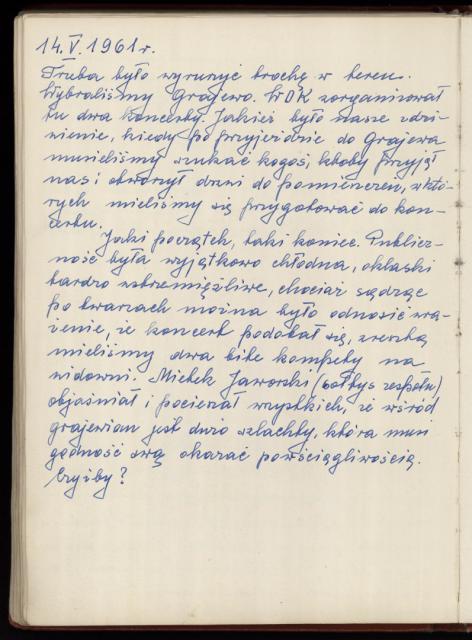 14.V.1961 r.
Trzeba było wyruszyć trochę w teren.
Wybraliśmy Grajewo. WDK zorganizował
tu dwa koncerty. Jakież było nasze zdzi-
wienie, kiedy po przyjeździe do Grajewa
musieliśmy szukać kogoś, ktoby przyjął
nas i otworzył drzwi do pomieszczeń, w któ-
rych mieliśmy się przygotować do kon-
certu.
Jaki początek, taki koniec. Publicz-
ność była wyjątkowo chłodna, oklaski
bardzo wstrzemięźliwe, chociaż sądząc
po twarzach można było odnosić wra-
żenie, że koncert podobał się, zresztą
mieliśmy dwa bite komplety na
widowni. Mietek Jaworski (sołtys zespołu)
objaśniał i pocieszał wszystkich, że wśród
grajewian jest dużo szlachty, która musi
godność swą okazać powściągliwością.
Czyżby?